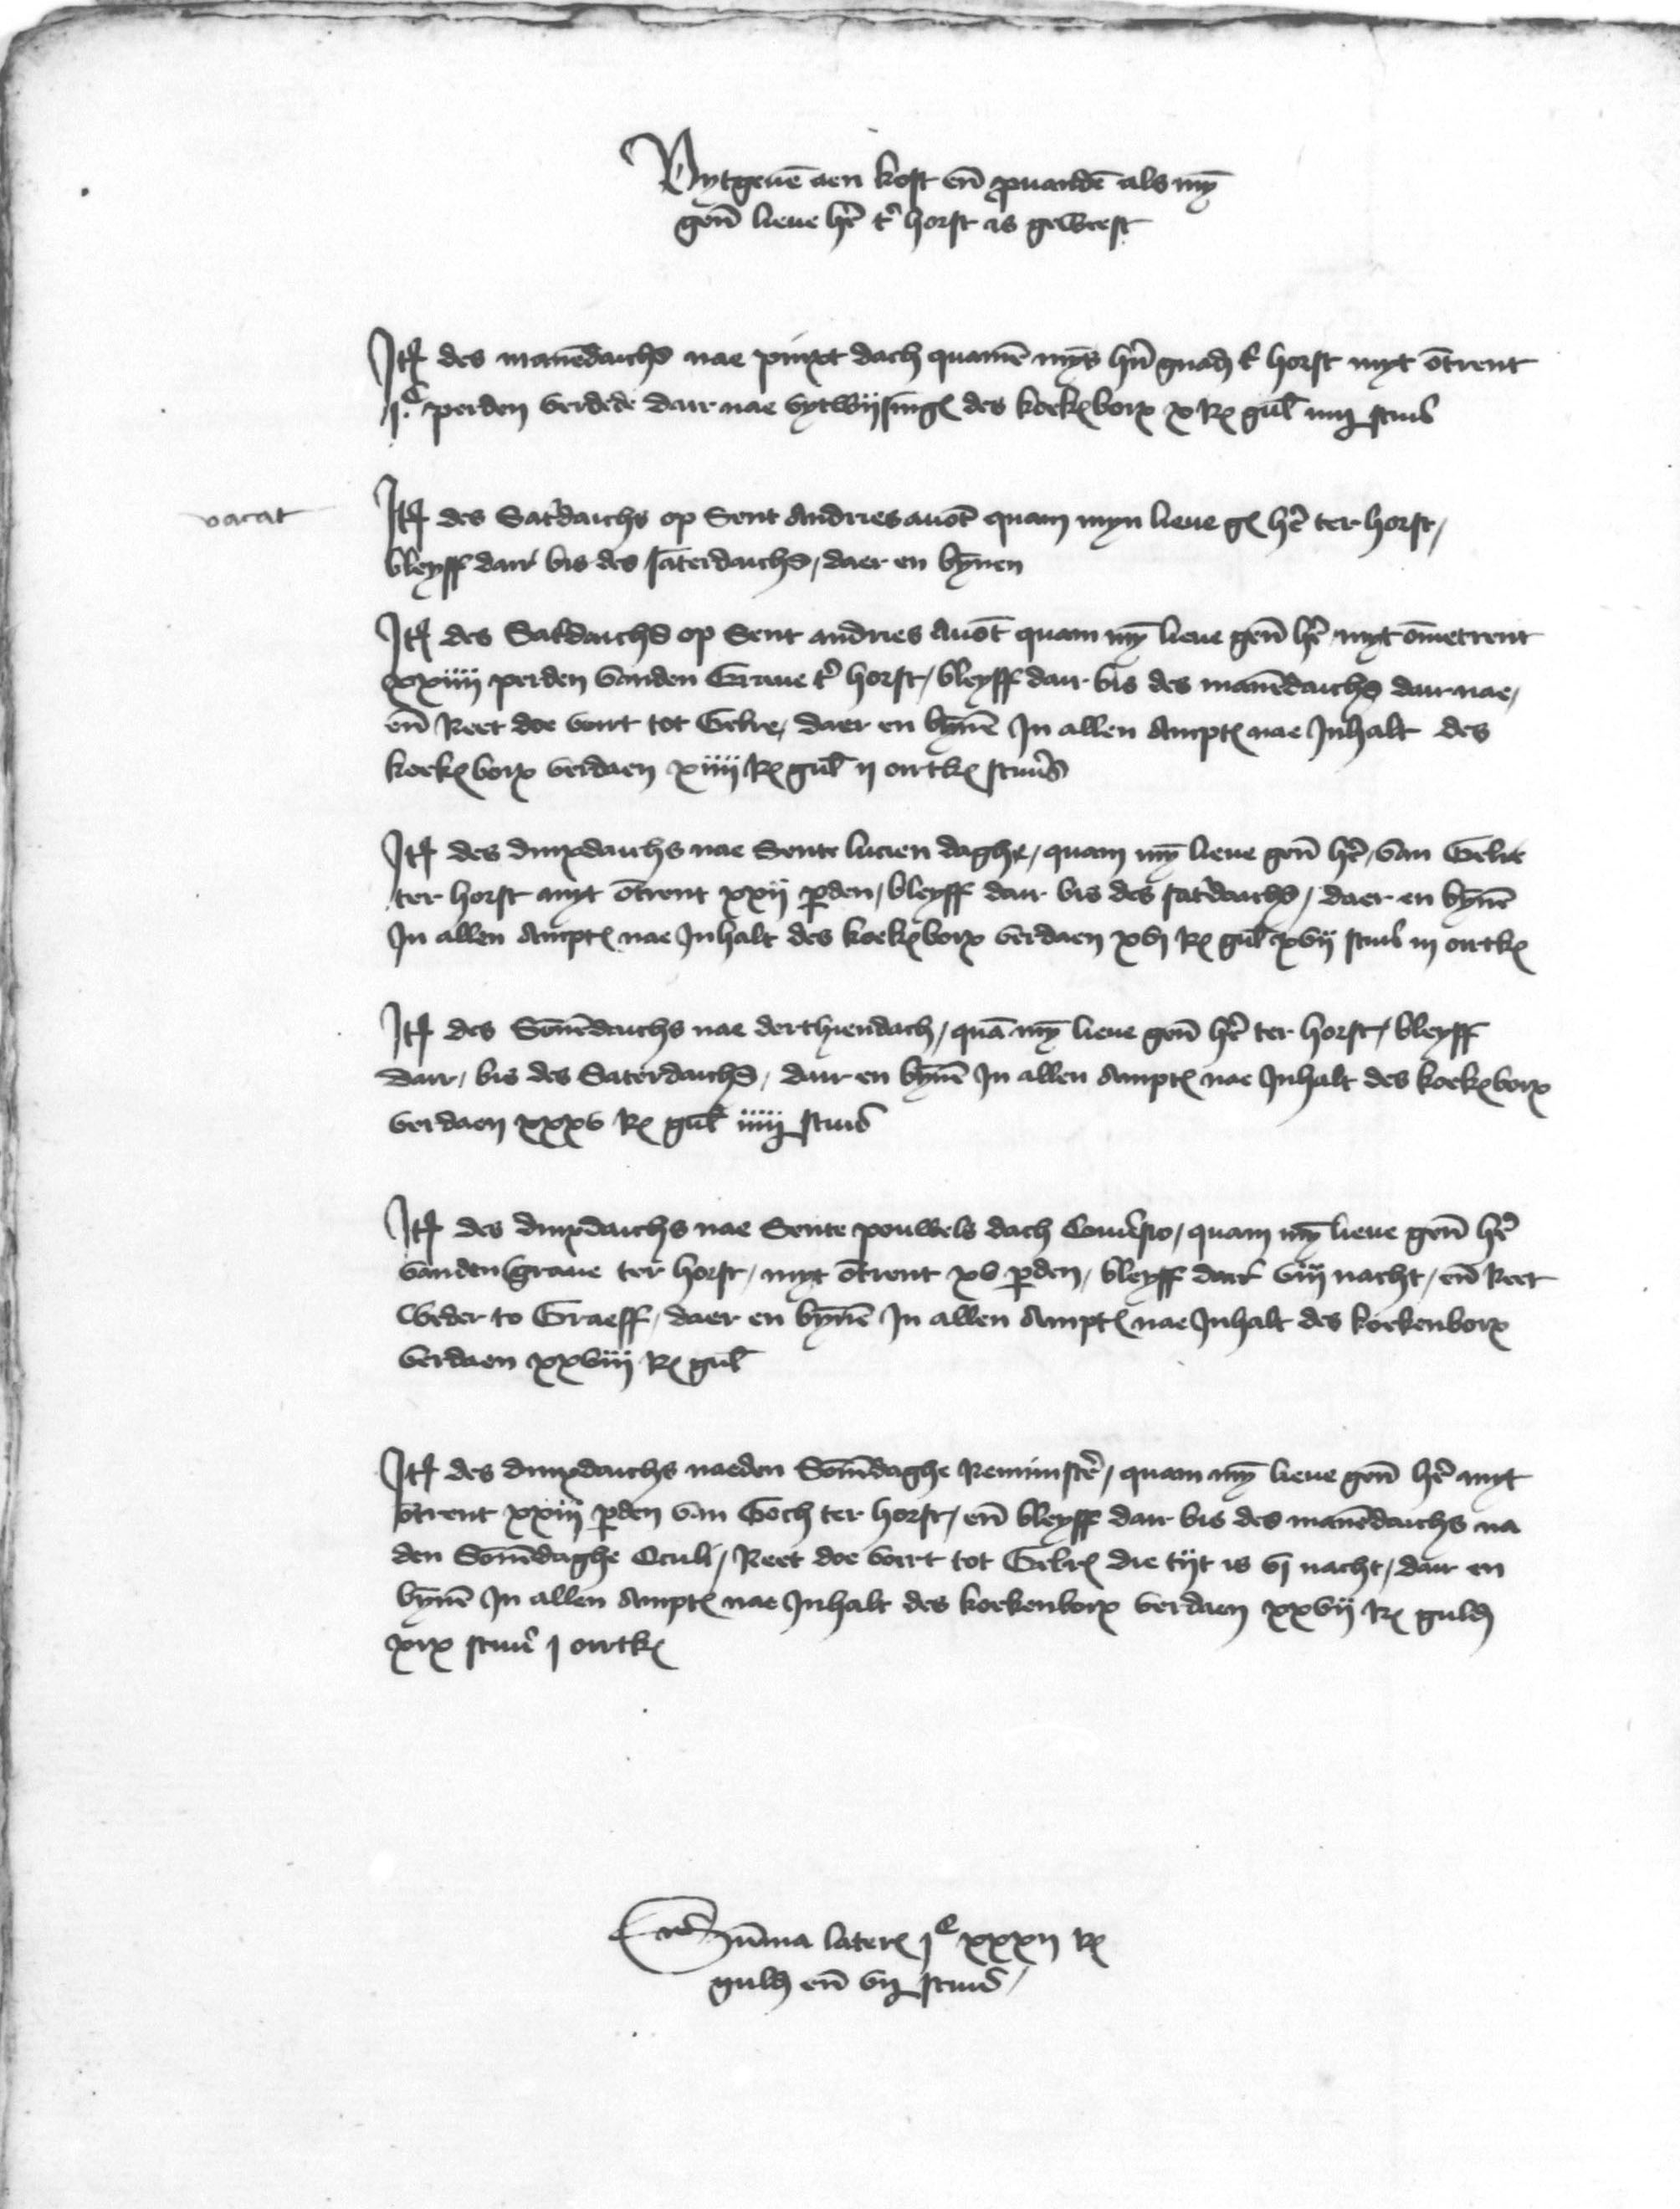 Vytgeuē aen kost eñ puandē als mȳ
geñ lieue hr̄ t' horst is geweest
Itē des manēdaichs nae pinxt dach quamē mȳs hrñ gnadē t' horst myt ōtrent
jc perden verdede dair nae vytwijsingē des koekēborx x Rē gul iiij stuu'
vacat
Itē des Sat'daichs op Sent Andries auōt quam myn lieue gē hr̄ ter horst /
bleyff dair bis des saterdaichs / daer en bȳnen
Itē des Sat'daichs op Sent andries Auōt quam mȳ lieue geñ hr̄ myt ōmetrent
xxiiij perden vanden Graue t' horst / bleyff dair bis des manēdaichs dair nae /
eñ Reet doe vort tot Gelre / daer en bȳnē In allen Amptē nae Inhalt des
koekēborx verdaen xiiij Rē gul ij ortkē stuu's
Itē des dinxdaichs nae Sente lucien daghe / quam mȳ lieue geñ hr̄ / van Gelre
ter horst myt ōtrent xxij pden / bleyff dair bis des sat'daichs / daer en bȳnē
In allen Amptē nae Inhalt des koekēborx verdaen xvj Rē gul xvij stuu' iij ortkē
Itē des Sonēdaichs nae derthiendach / quā mȳ lieue geñ hr̄ ter horst / bleyff
dair / bis des Saterdaichs / dair en bȳnē In allen Amptē nae Inhalt des koekēborx
verdaen xxxv Rē gul iiiij stuu'
Itē des dinxdaichs nae Sente pouwels dach Conu'sio / quam mȳ lieue geñ hr̄
vanden graue ter horst / myt ōtrent xv pden / bleyff dair viij nacht / eñ Reet
weder to Graeff / daer en bȳnē In allen Amptē nae Inhalt des koekenborx
verdaen xxviij Rē gul
Itē des dinxdaichs naeden Sonēdaghe Reminiscē / quam mȳ lieue geñ hr̄ myt
ōtrent xxiij pden van Goch ter horst / eñ bleyff dair bis des manēdaichs na
den Sonēdaghe Oculi / Reet doe vort tot Gelrē die tijt is vj nacht / dair en
bȳnē In allen Amptē nae Inhalt des koekenborx verdaen xxvij Rē guldē
xix stuu' j ortkē
Sūma laterē jc xxxij Rē
guldē eñ vij stuu'